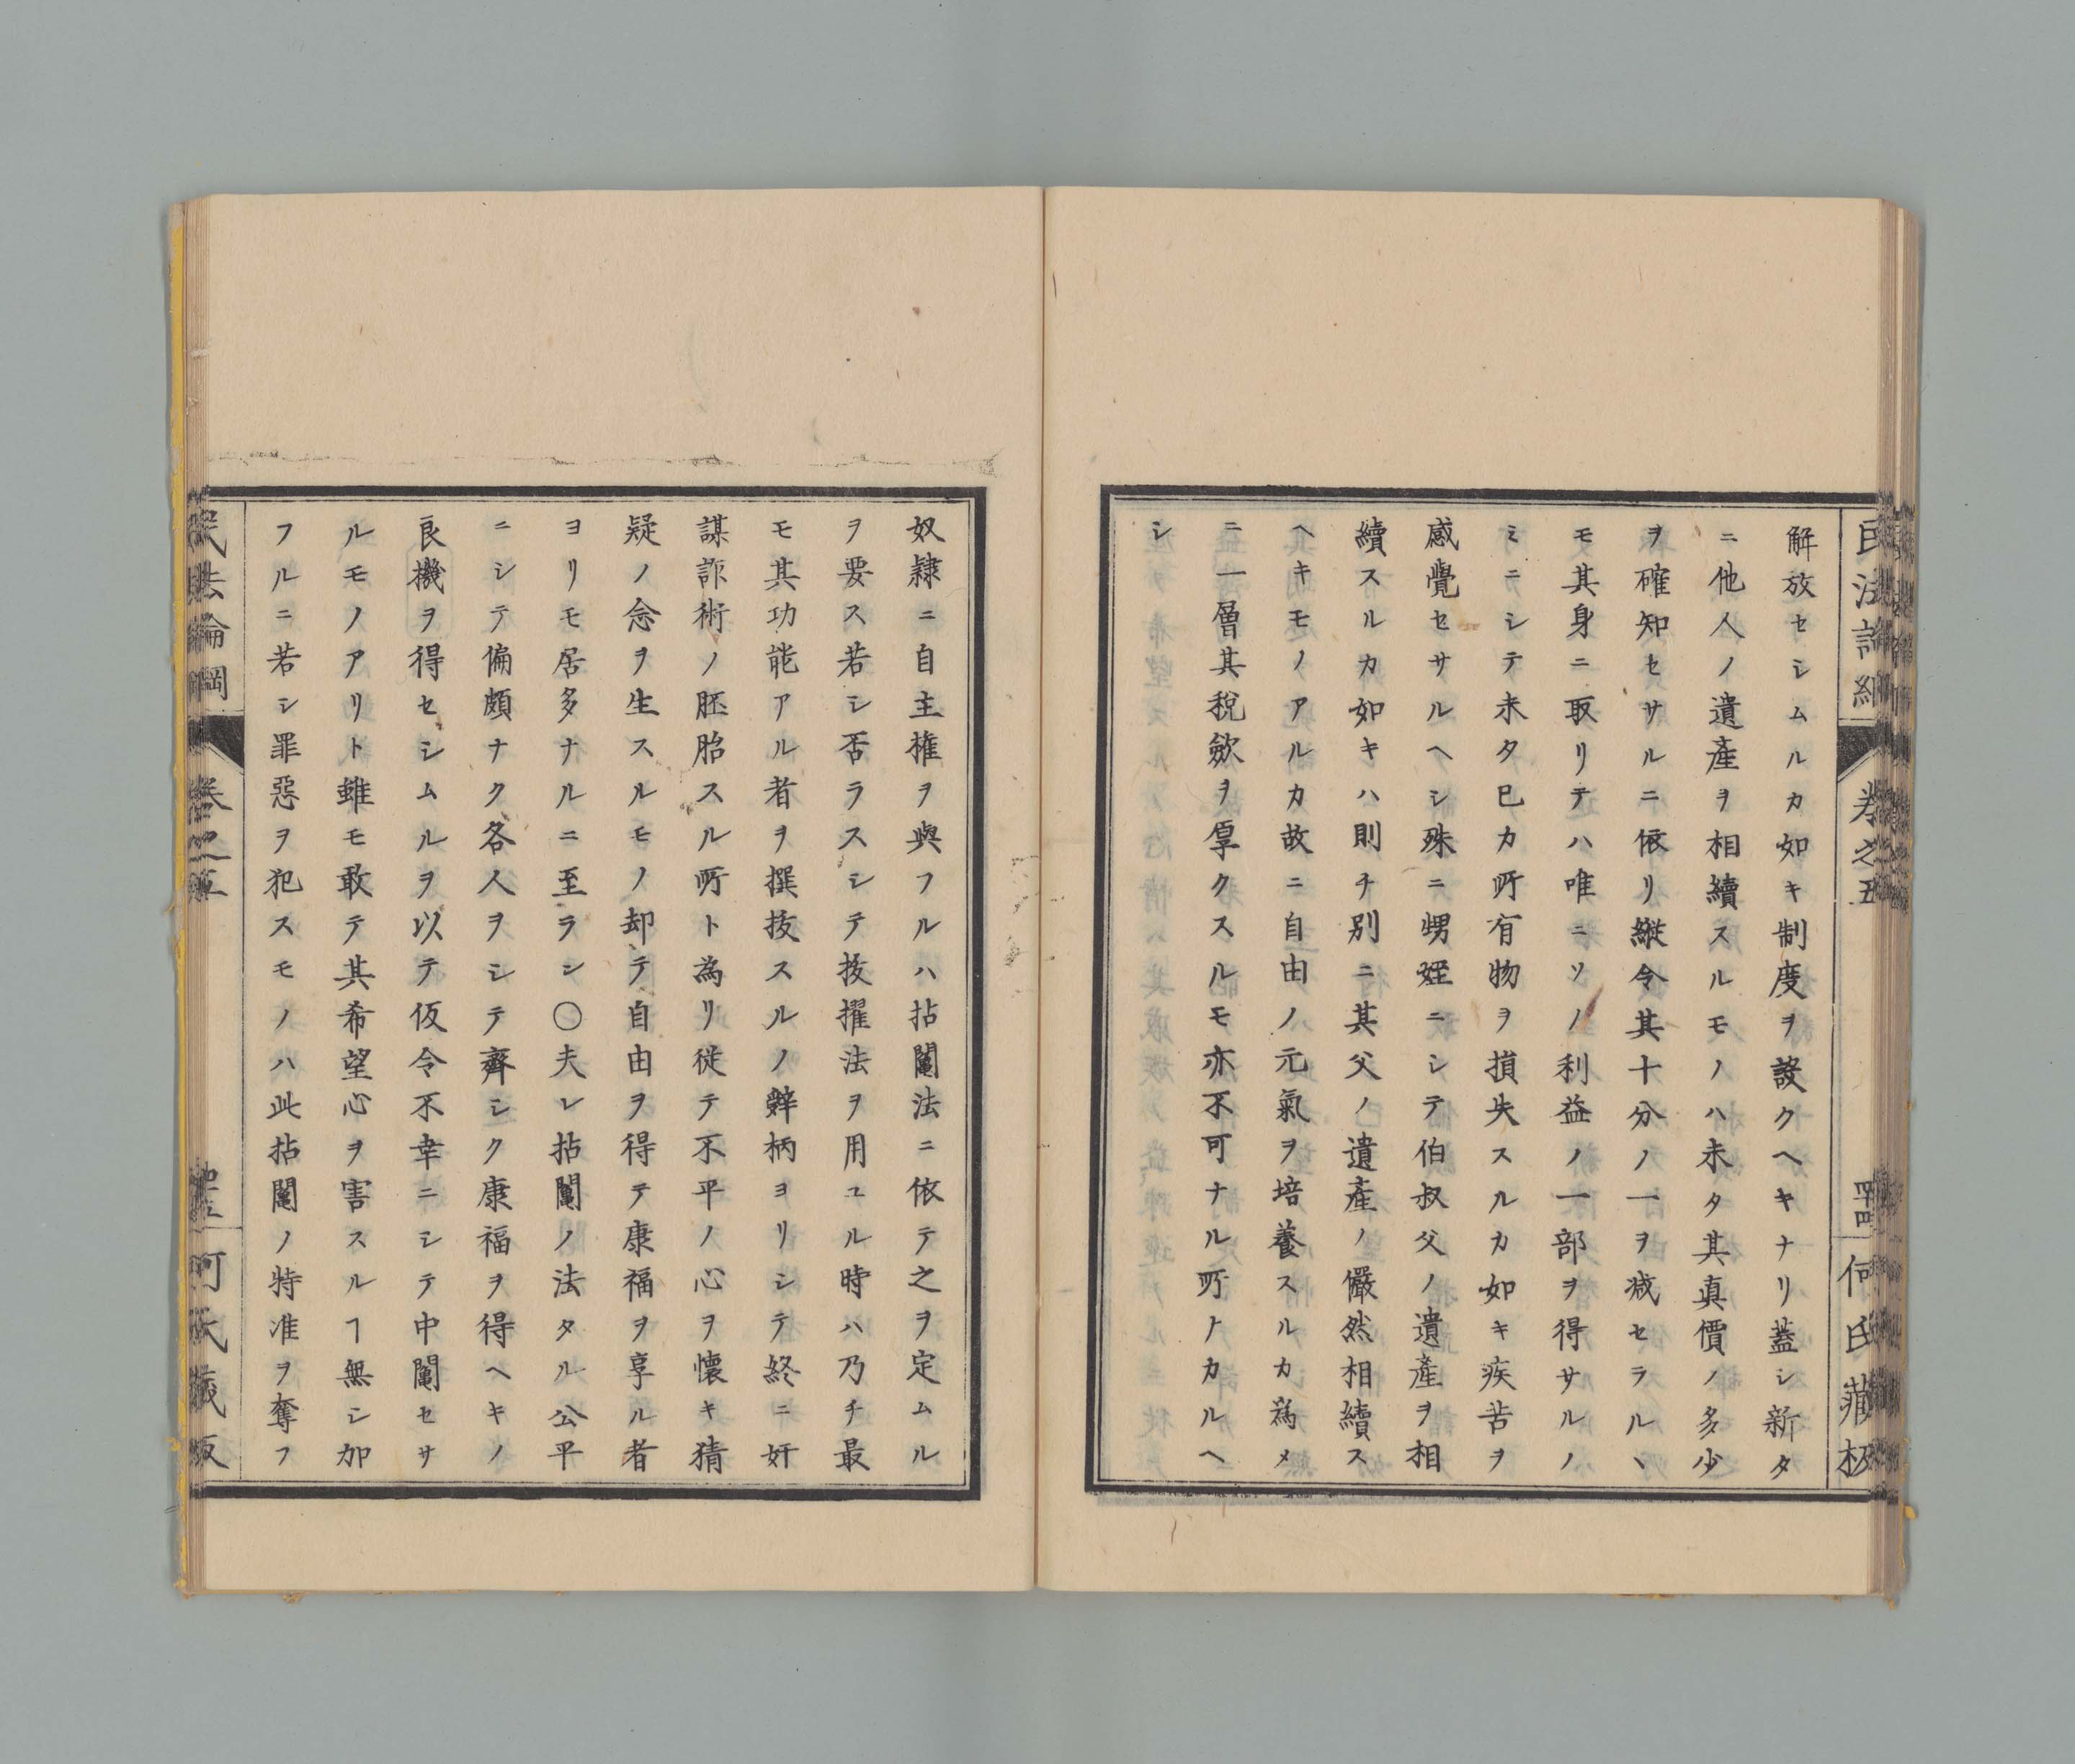 民法論綱 卷之五 四十四 何氏藏板
解放セシムルカ如キ制度ヲ設クヘキナリ蓋シ新タ
ニ他人ノ遺產ヲ相續スルモノハ未タ其真價ノ多少
ヲ確知セサルニ依リ縱令其十分ノ一ヲ减セラルヽ
モ其身ニ取リテハ唯ニソノ利益ノ一部ヲ得サルノ
ミニシテ未タ已カ所有物ヲ損失スルカ如キ疾苦ヲ
感覺セサルヘシ殊ニ甥姪ニシテ伯叔父ノ遺產ヲ相
續スルカ如キハ則チ別ニ其父ノ遺產ノ儼然相續ス
ヘキモノアルカ故ニ自由ノ元氣ヲ培養スルカ為メ
ニ一層其稅斂ヲ厚クスルモ亦不可ナル所ナカルヘ
シ
奴隸ニ自主權ヲ與フルハ拈鬮法ニ依テ之ヲ定ムル
ヲ要ス若シ否ラスシテ拔擢法ヲ用ユル時ハ乃チ最
モ其功能アル者ヲ撰拔スルノ辭柄ヨリシテ終ニ奸
謀詐術ノ胚胎スル所ト為リ徒テ不平ノ心ヲ懷キ猜
疑ノ念ヲ生スルモノ却テ自由ヲ得テ康福ヲ享ル者
ヨリモ居多ナルニ至ラン〇夫レ拈鬮ノ法タル公平
ニシテ偏頗ナク各人ヲシテ齊シク康福ヲ得ヘキノ
良機ヲ得セシムルヲ以テ仮令不幸ニシテ中鬮セサ
ルモノアリト雖モ敢テ其希望心ヲ害スルヿ無シ加
フルニ若シ罪惡ヲ犯スモノハ此拈鬮ノ特准ヲ奪フ
民法論綱 卷之五 何氏藏板